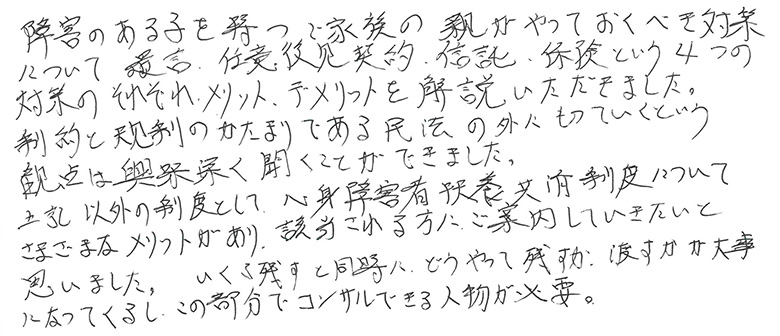 障害のある子を持つご家族の親がやっておくべき対策
について 遺言、任意後見契約、信託、保険という4つの
対策のそれぞれメリット、デメリットを解説いただきました。
制約と規制のかたまりである民法の外にもっていくという
観点は興味深く聞くことができました。
上記以外の制度として、心身障害者扶養共済制度について
さまざまなメリットがあり、該当される方にご案内していきたいと
思いました。 いくら残すと同時に、どうやって残すか、渡すかが大事
になってくるし、この部分でコンサルできる人物が必要。